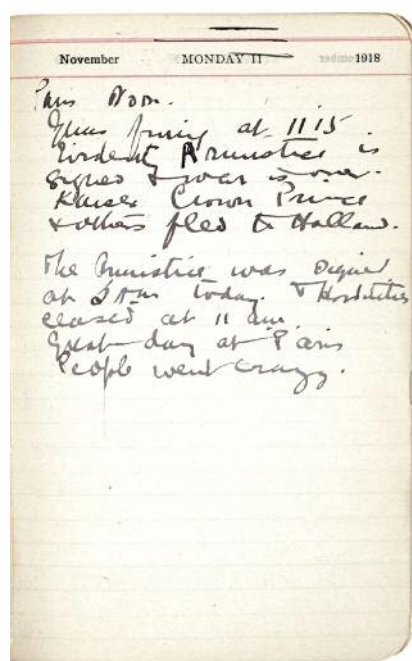 November MONDAY 11 1918
Paris Noon.
Guns firing at 11 15.
Evidently Armistice is
signed & war is over.
Kaiser Crown Prince
& others fled to Holland.
The Armistice was signed
at 5 am today. & Hostilities
ceased at 11 am.
Great day at Paris
People went crazy.